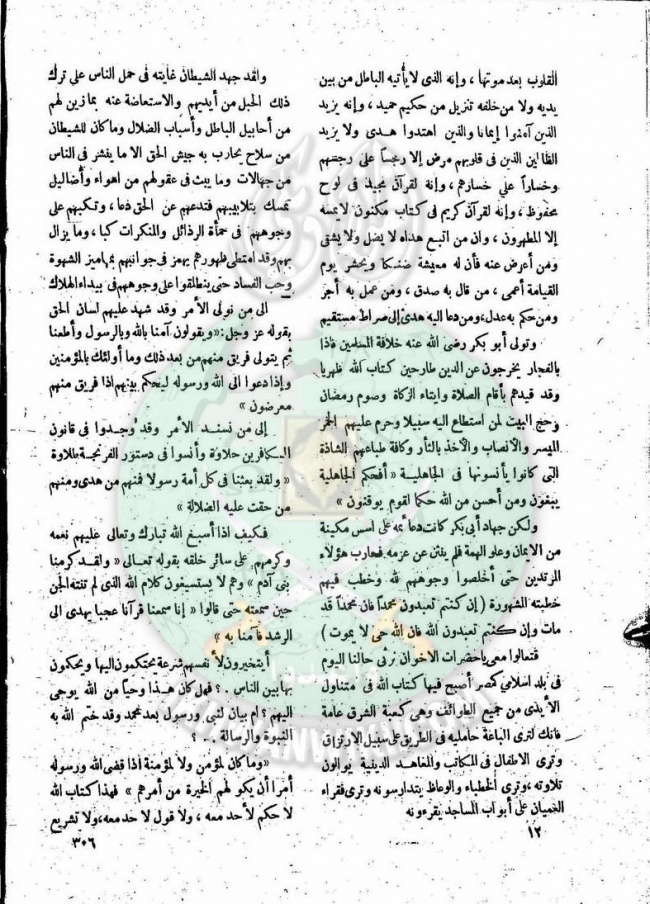 القلوب بعد موتها ، وإنه الذى لا يأتيه الباطل من بين
يديه ولا من خلفه تنزيل من حكيم حميد ، وإنه يزيد
الذين آمنوا إيمانا والذين اهتدوا هدى ولا يزيد
الظالمين الذين فى قلوبهم مرض إلا رجساً على رجسهم
وخساراً على خسارهم ، وإنه لقرآن مجيد فى لوح
محفوظ ، وإنه لقرآن كريم فى كتاب مكنون لا يمسه
إلا المطهرون ، وان من اتبع هداه لا يضل ولا يشقى
ومن أعرض عنه فأن له معيشة ضنكا ويحشر يوم
القيامة أعمى ، من قال به صدق ، ومن عمل به أجر
ومن حكم به عدل ، ومن دعا اليه هدى إلى صراط مستقيم
وتولى أبو بكر رضى الله عنه خلافة المسلمين فاذا
بالفجار يخرجون عن الدين طارحين كتاب الله ظهريا
وقد قيدهم بأقام الصلاة وايتاء الزكاة وصوم رمضان
وحج البيت لمن استطاع اليه سبيلا وحرم عليهم الخمر
الميسر والانصاب والأخذ بالثأر وكافة طباعهم الشاذة
التى كانوا يأنسونها فى الجاهلية « أفحكم الجاهلية
يبغون ومن أحسن من الله حكما لقوم يوقنون »
ولكن جهاد أبى بكر كانت دعائمه على اسس مكينة
من الايمان وعلو الهمة فلم ينثن عن عزمه فحارب هؤلاء
المرتدين حتى أخلصوا وجوههم لله وخطب فيهم
خطبته المشهورة ( إن كنتم تعبدون محمداً فان محمداً قد
مات وإن كنتم تعبدون الله فان الله حى لا يموت )
فتعالوا معى يا حضرات الاخوان نرى حالنا اليوم
فى بلد اسلامى كمصر أصبح فيها كتاب الله فى متناول
الأيدى من جميع الطوائف وهى كعبة الشرق عامة
فانك لترى الباغة حامليه فى الطريق على سبيل الارتزاق
وترى الاطفال فى المكاتب والمعاهد الدينية يوالون
تلاوته ، وترى الخطباء والوعاظ يتدارسونه وترى فقراء
العميان على أبواب المساجد يقرءونه
١٢
ولقد جهد الشيطان غايته فى حمل الناس على ترك
ذلك الحبل من أيديهم والاستعاضة عنه بما زين لهم
من أحابيل الباطل وأسباب الضلال وما كان للشيطان
من سلاح يحارب به جيش الحق الا ما ينشر فى الناس
من جهالات وما يبث فى عقولهم من اهواء وأضاليل
تمسك بتلابيبهم فتدعهم عن الحق دعا ، وتكبهم على
وجوههم فى حمأة الرذائل والمنكرات كبا ، وما يزال
بهم وقد امتطى ظهورهم يهمز فى جوانبهم بمهاميز الشهوة
وحب الفساد حتى ينطلقوا على وجوههم فى بيداء الهلاك
الى من نولى الأمر وقد شهد عليهم لسان الحق
بقوله عز وجل : « ويقولون آمنا بالله وبالرسول وأطعنا
ثم يتولى فريق منهم من بعد ذلك وما أولئك بالمؤمنين
وإذا دعوا الى الله ورسوله ليحكم بينهم إذا فريق منهم
معرضون »
إلى من نسند الأمر وقد وجدوا فى قانون
الكافرين حلاوة وأنسوا فى دستور الفرنجة طلاوة
« ولقد بعثنا فى كل أمة رسولا فمنهم من هدى ومنهم
من حقت عليه الضلالة »
فكيف اذا أسبغ الله تبارك وتعالى عليهم نعمه
وكرمهم على سائر خلقه بقوله تعالى « ولقد كرمنا
بنى آدم » وهم لا يستسيغون كلام الله الذى لم تفته الجن
حين سمعته حتى قالوا « إنا سمعنا قرآنا عجبا يهدى الى
الرشد فآمنا به »
أيتخيرون لأنفسهم شرعة يحتكمون اليها ويحكمون
بها بين الناس . ؟ فهل كان هذا وحيا من الله يوحى
اليهم ؟ ام بيان لنبى ورسول بعد محمد وقد ختم الله به
النبوة والرسالة . . ؟
« وما كان لمؤمن ولا لمؤمنة اذا قضى الله ورسوله
أمرا أن يكو لهم الخيرة من أمرهم » فهذا كتاب الله
لا حكم لأحد معه ، ولا قول لاحد معه ، ولا تشريع
٣٠٦